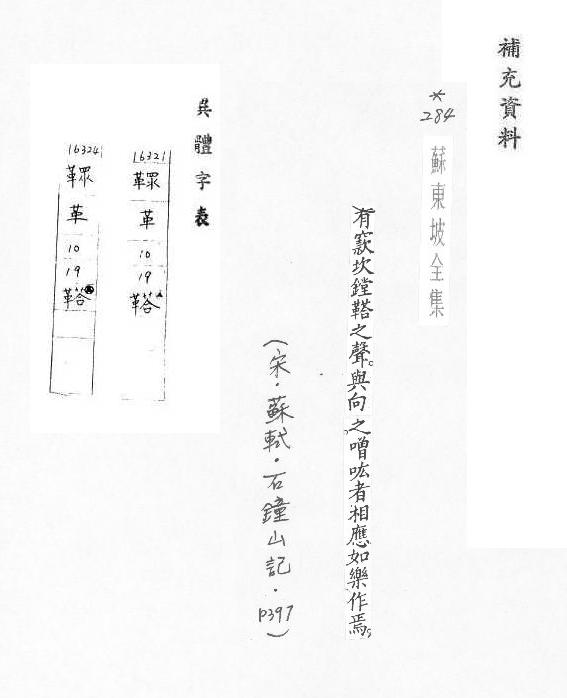 補充資料
*
284
蘇東坡全集
有窾坎鏜鞳之聲。與向之噌吰者相應如樂作焉。
(宋·蘇軾·石鐘山記·P397)
異體字表
16321
革
10
19
鞳
16324
革
10
19
鞳